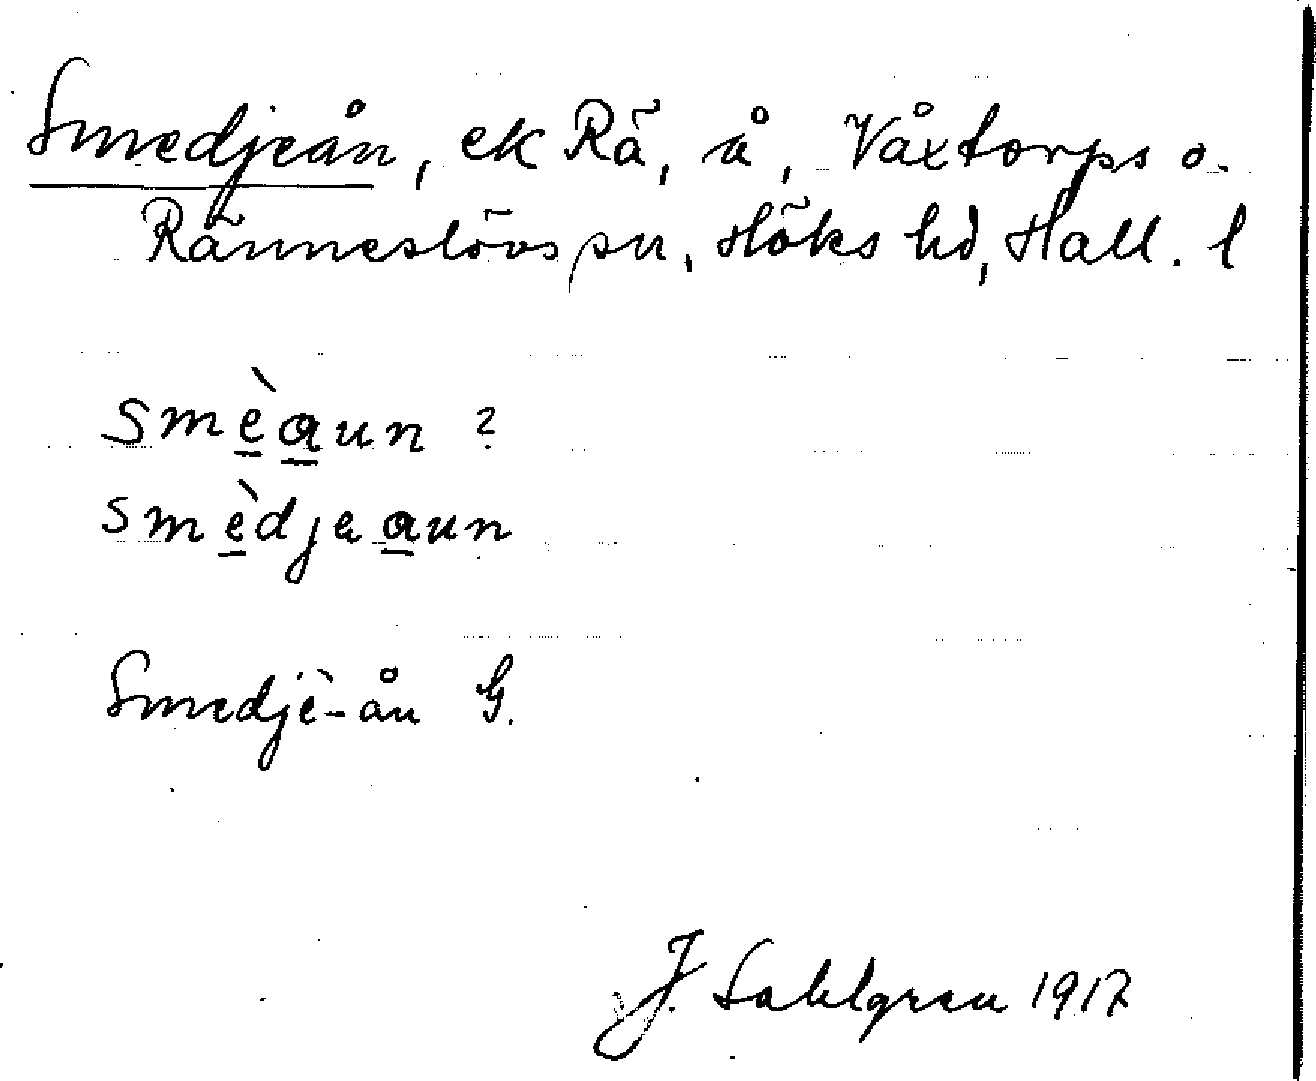 Smedjeån, ek Rä, å, Våxtorps o.
Ränneslövs snr, Höks hd, Hall. l
smèaun ?
smèdjeaun
Smedjè-ån G.
J. Sahlgren 1917